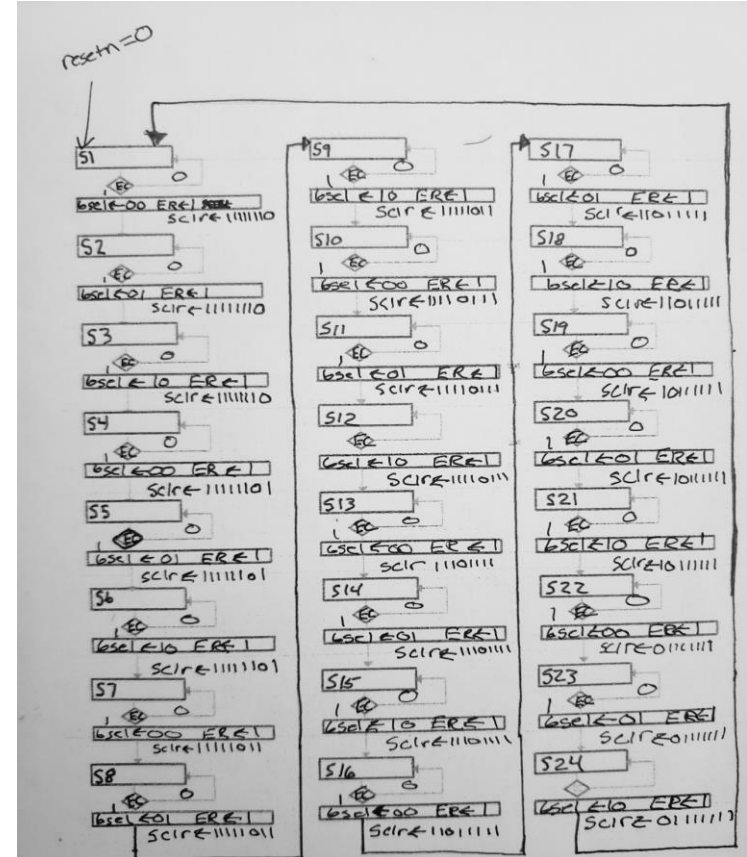 resetn=0
S1
EC
0
1
bsel←00 ER←1
Sclr←11111110
S2
EC
0
1
bsel←01 ER←1
Sclr←11111110
S3
EC
0
1
bsel←10 ER←1
Sclr←11111110
S4
EC
0
1
bsel←00 ER←1
Sclr←11111101
S5
EC
0
1
bsel←01 ER←1
Sclr←11111101
S6
EC
0
1
bsel←10 ER←1
Sclr←11111101
S7
EC
0
1
bsel←00 ER←1
Sclr←11111011
S8
EC
0
1
bsel←01 ER←1
Sclr←11111011
S9
EC
0
1
bsel←10 ER←1
Sclr←11111011
S10
EC
0
1
bsel←00 ER←1
Sclr←11110111
S11
EC
0
1
bsel←01 ER←1
Sclr←11110111
S12
EC
0
1
bsel←10 ER←1
Sclr←11110111
S13
EC
0
1
bsel←00 ER←1
Sclr 11101111
S14
EC
0
1
bsel←01 ER←1
Sclr←11101111
S15
EC
0
1
bsel←10 ER←1
Sclr←11101111
S16
EC
0
1
bsel←00 ER←1
Sclr←11011111
S17
EC
0
1
bsel←01 ER←1
Sclr←11011111
S18
EC
0
1
bsel←10 ER←1
Sclr←11011111
S19
EC
0
1
bsel←00 ER←1
Sclr←10111111
S20
EC
0
1
bsel←01 ER←1
Sclr←10111111
S21
EC
0
1
bsel←10 ER←1
Sclr←10111111
S22
EC
0
1
bsel←00 ER←1
Sclr←01111111
S23
EC
0
1
bsel←01 ER←1
Sclr←01111111
S24
bsel←10 ER←1
Sclr←01111111